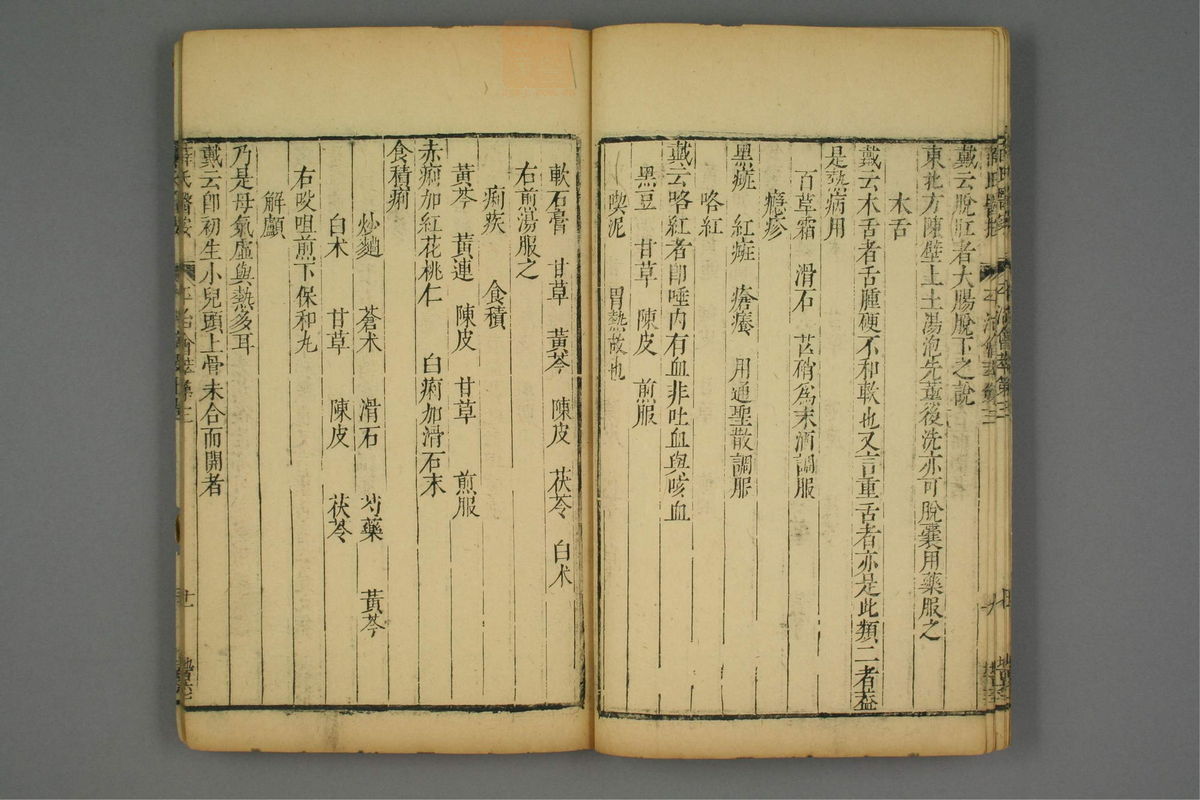 戴云脫肛者大腸脫下之說
東北方陳壁土土湯泡先薰後洗亦可脫囊用藥服之
木舌
戴云木舌者舌腫硬不和軟也又言重舌者亦是此類二者蓋
是熱病用
百草霜 滑石 芒硝爲末酒調服
癮疹
黑癍 紅癍 瘡癢 用通聖散調服
咯紅
戴云咯紅者卽唾內有血非吐血與咳血
黑豆 甘草 陳皮 煎服
喫泥 胃熱故也
軟石膏 甘草 黃芩 陳皮 茯苓 白术
右煎湯服之
痢疾 食積
黃芩 黃連 陳皮 甘草 煎服
赤痢加紅花桃仁 白痢加滑石末
食積痢
炒麯 蒼术 滑石 芍藥 黃芩
白术 甘草 陳皮 茯苓
右㕮咀煎下保和丸
解顱
乃是母氣虛與熱多耳
戴云卽初生小兒頭上骨未合而開者